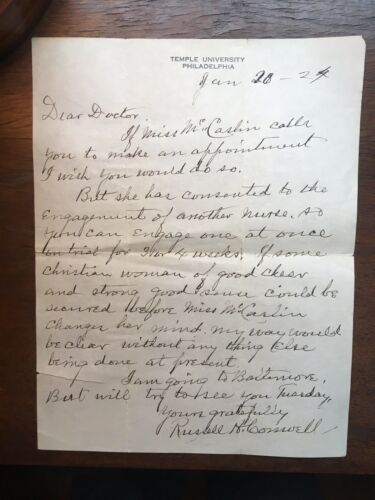 TEMPLE UNIVERSITY
PHILADELPHIA
Jan 20 - 24
Dear Doctor
If Miss McCaslin calls
you to make an appointment
I wish you would do so.
But she has consented to the
Engagement of another nurse. so
you can Engage one at once
on trial for 3 or 4 weeks. If some
christian woman of good cheer
and strong good sense could be
secured before Miss McCaslin
changes her mind. my way would
be clear without any thing Else
being done at present.
I am going to Baltimore.
But will try to see you Tuesday.
Yours gratefully
Russell H. Conwell